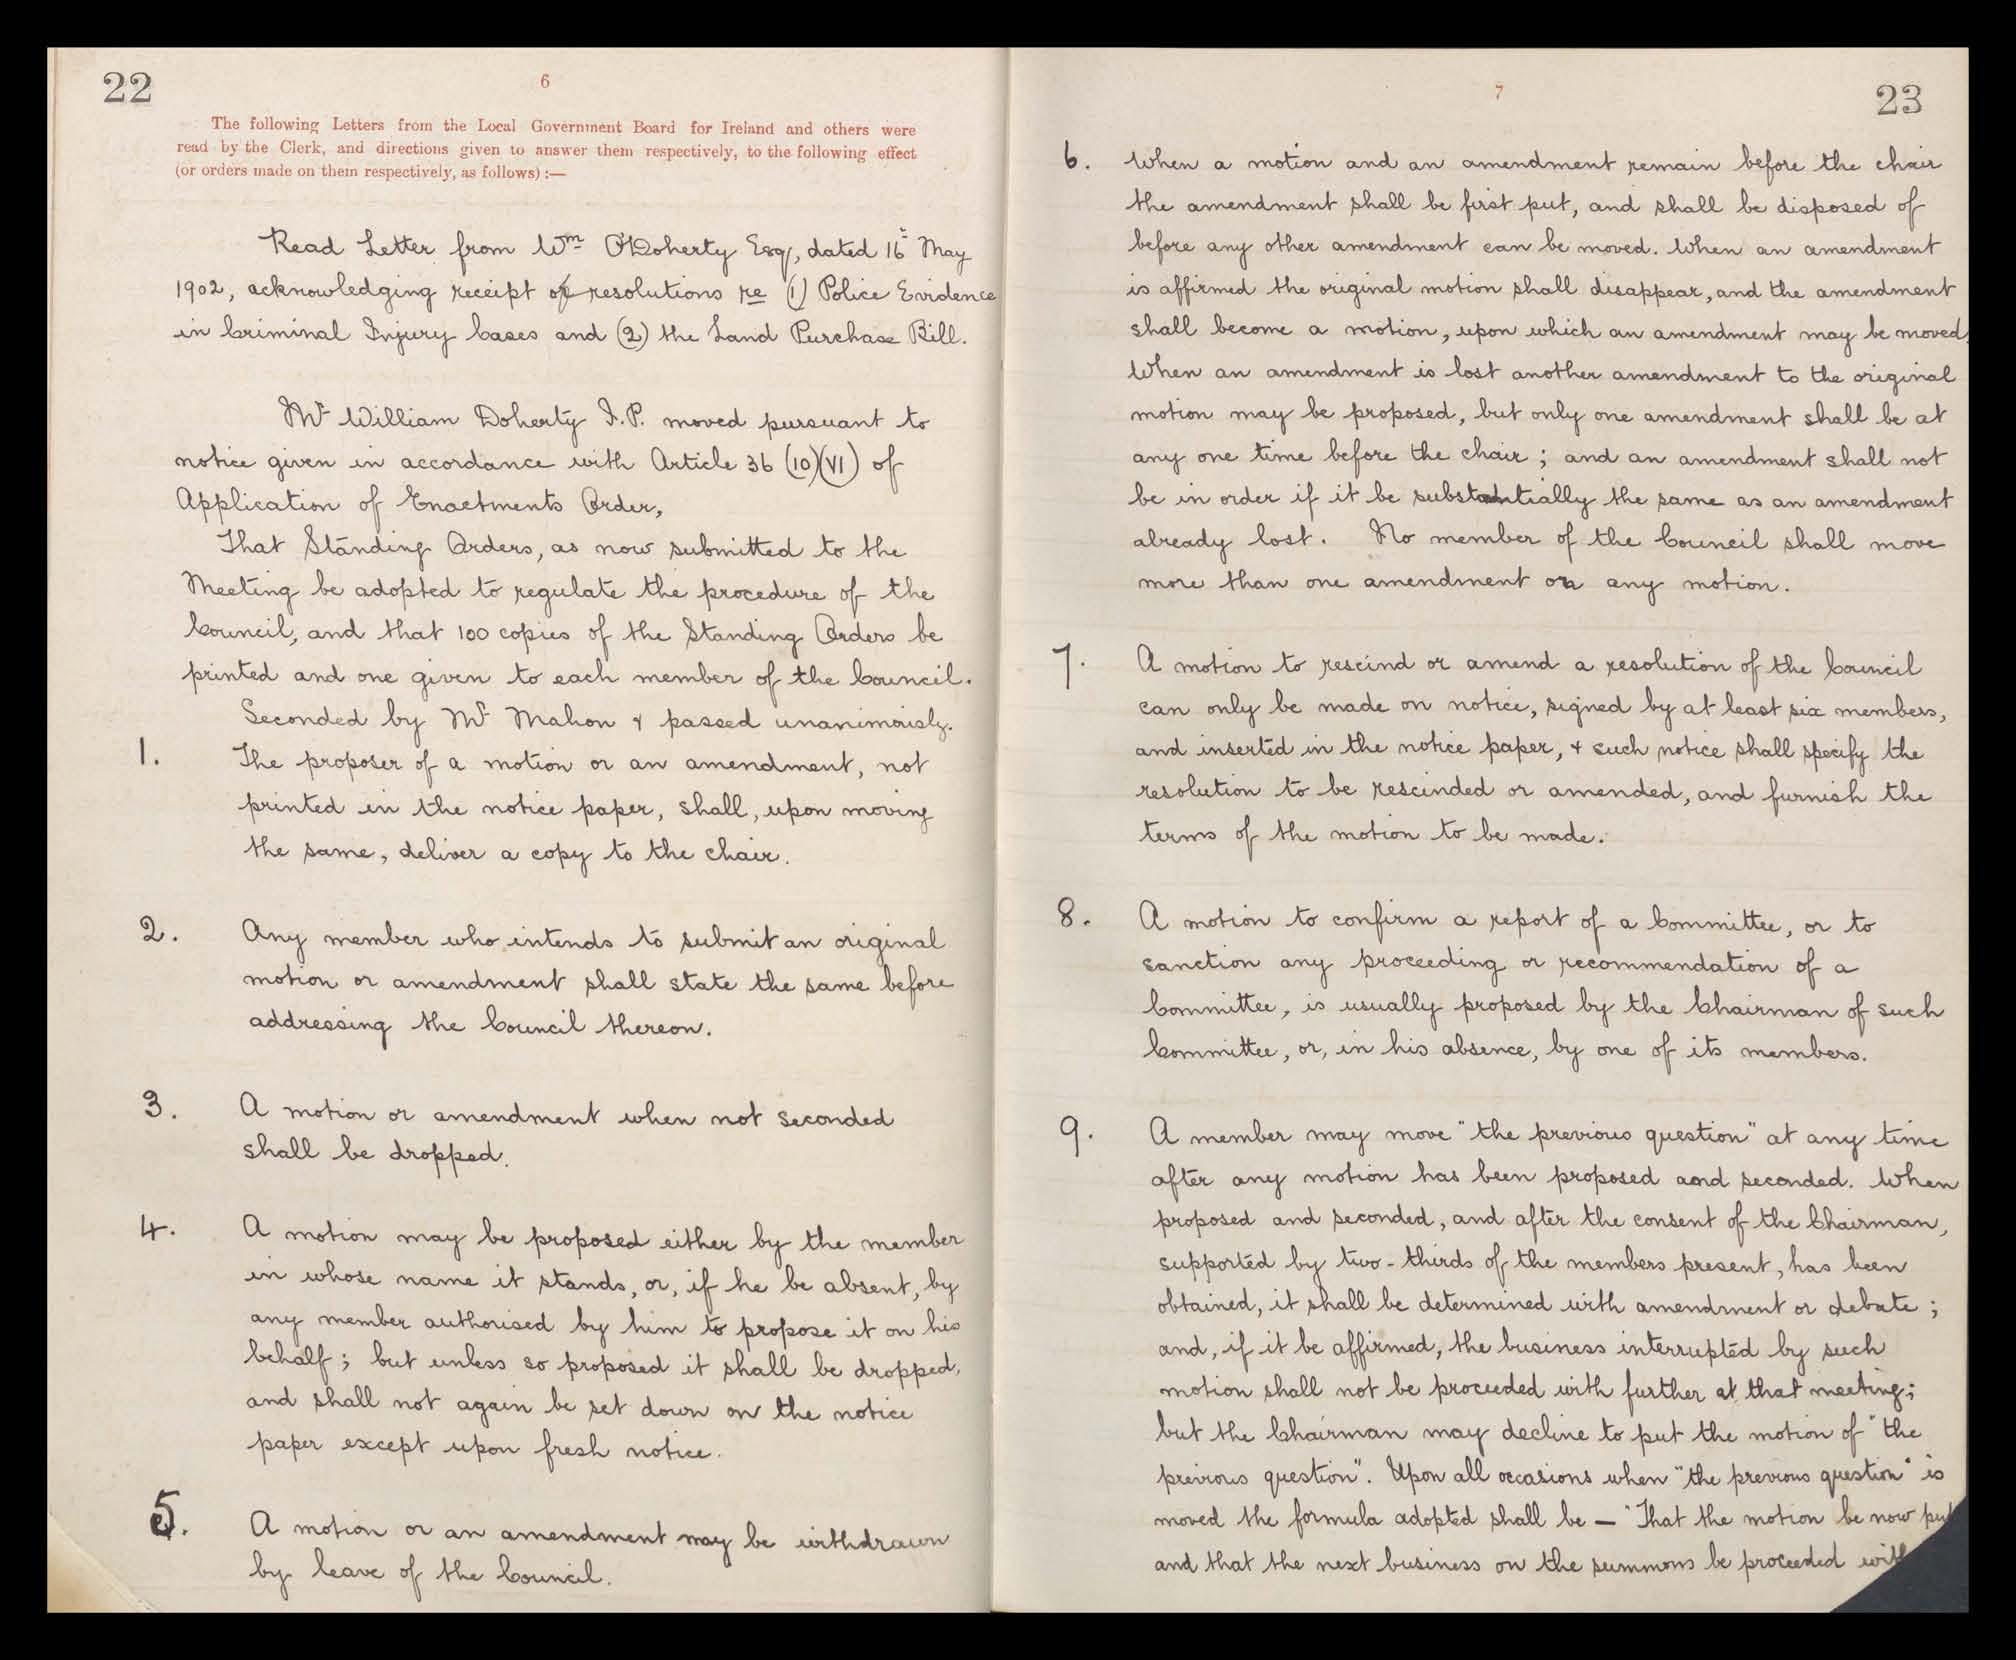 22
6
The following Letters from the Local Government Board for Ireland and others were
read by the Clerk, and directions given to answer them respectively, to the following effect
(or orders made on them respectively, as follows) :—
Read Letter from Wm O'Doherty Esq, dated 16th May
1902, acknowledging receipt of resolutions re (1) Police Evidence
in Criminal Injury Cases and (2) the Land Purchase Bill.
Mr William Doherty J.P. moved pursuant to
notice given in accordance with Article 36 (10)(VI) of
Application of Enactments Order,
That Standing Orders, as now submitted to the
Meeting be adopted to regulate the procedure of the
Council, and that 100 copies of the Standing Orders be
printed and one given to each member of the Council.
Seconded by Mr Mahon & passed unanimously.
1. The proposer of a motion or an amendment, not
printed in the notice paper, shall, upon moving
the same, deliver a copy to the chair.
2. Any member who intends to submit an original
motion or amendment shall state the same before
addressing the Council thereon.
3. A motion or amendment when not seconded
shall be dropped.
4. A motion may be proposed either by the member
in whose name it stands, or, if he be absent, by
any member authorised by him to propose it on his
behalf; but unless so proposed it shall be dropped,
and shall not again be set down on the notice
paper except upon fresh notice.
5. A motion or an amendment may be withdrawn
by leave of the Council.
7
23
6. When a motion and an amendment remain before the chair
the amendment shall be first put, and shall be disposed of
before any other amendment can be moved. When an amendment
is affirmed the original motion shall disappear, and the amendment
shall become a motion, upon which an amendment may be moved.
When an amendment is lost another amendment to the original
motion may be proposed, but only one amendment shall be at
any one time before the chair; and an amendment shall not
be in order if it be substantially the same as an amendment
already lost. No member of the Council shall move
more than one amendment on any motion.
7. A motion to rescind or amend a resolution of the Council
can only be made on notice, signed by at least six members,
and inserted in the notice paper, & such notice shall specify the
resolution to be rescinded or amended, and furnish the
terms of the motion to be made.
8. A motion to confirm a report of a Committee, or to
sanction any proceeding or recommendation of a
Committee, is usually proposed by the Chairman of such
Committee, or, in his absence, by one of its members.
9. A member may move "the previous question" at any time
after any motion has been proposed and seconded. When
proposed and seconded, and after the consent of the Chairman,
supported by two-thirds of the members present, has been
obtained, it shall be determined with amendment or debate;
and, if it be affirmed, the business interrupted by such
motion shall not be proceeded with further at that meeting;
but the Chairman may decline to put the motion of "the
previous question". Upon all occasions when "the previous question" is
moved the formula adopted shall be — "That the motion be now put
and that the next business on the summons be proceeded with